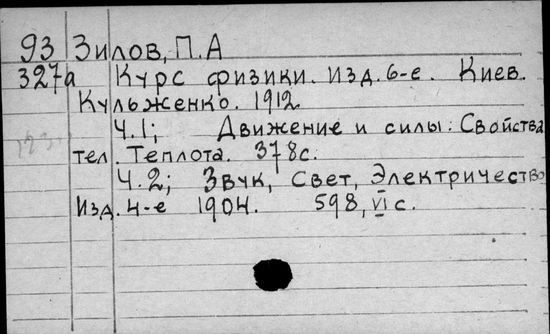 93 Зилов, П.А
327а Курс физики. Изд. 6-е. Киев.
Кульженко. 1912
Ч.1; Движение и силы: Свойства
тел. Теплота. 378с.
Ч.2; Звук, Свет, Электричество
Изд. 4-е 1904. 598, VI с.